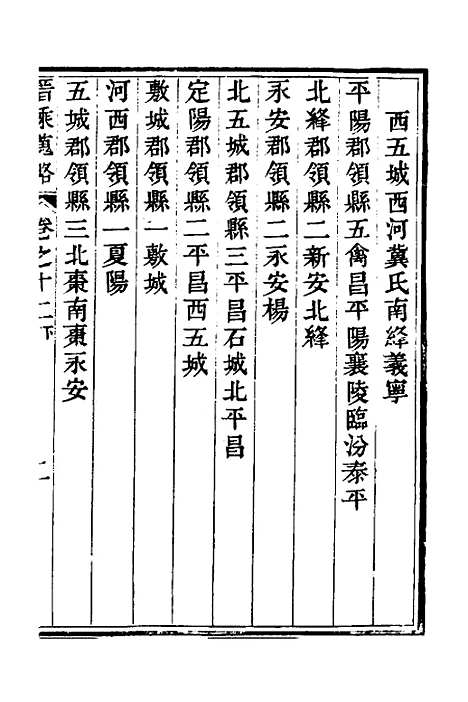 西五城西河冀氏南絳義寧
平陽郡領縣五禽昌平陽襄陵臨汾泰平
北絳郡領縣二新安北絳
永安郡領縣二永安楊
北五城郡領縣三平昌石城北平昌
定陽郡領縣二平昌西五城
敷城郡領縣一敷城
河西郡領縣一夏陽
五城郡領縣三北棗南棗永安
晉乘蒐略 卷之十二下 二